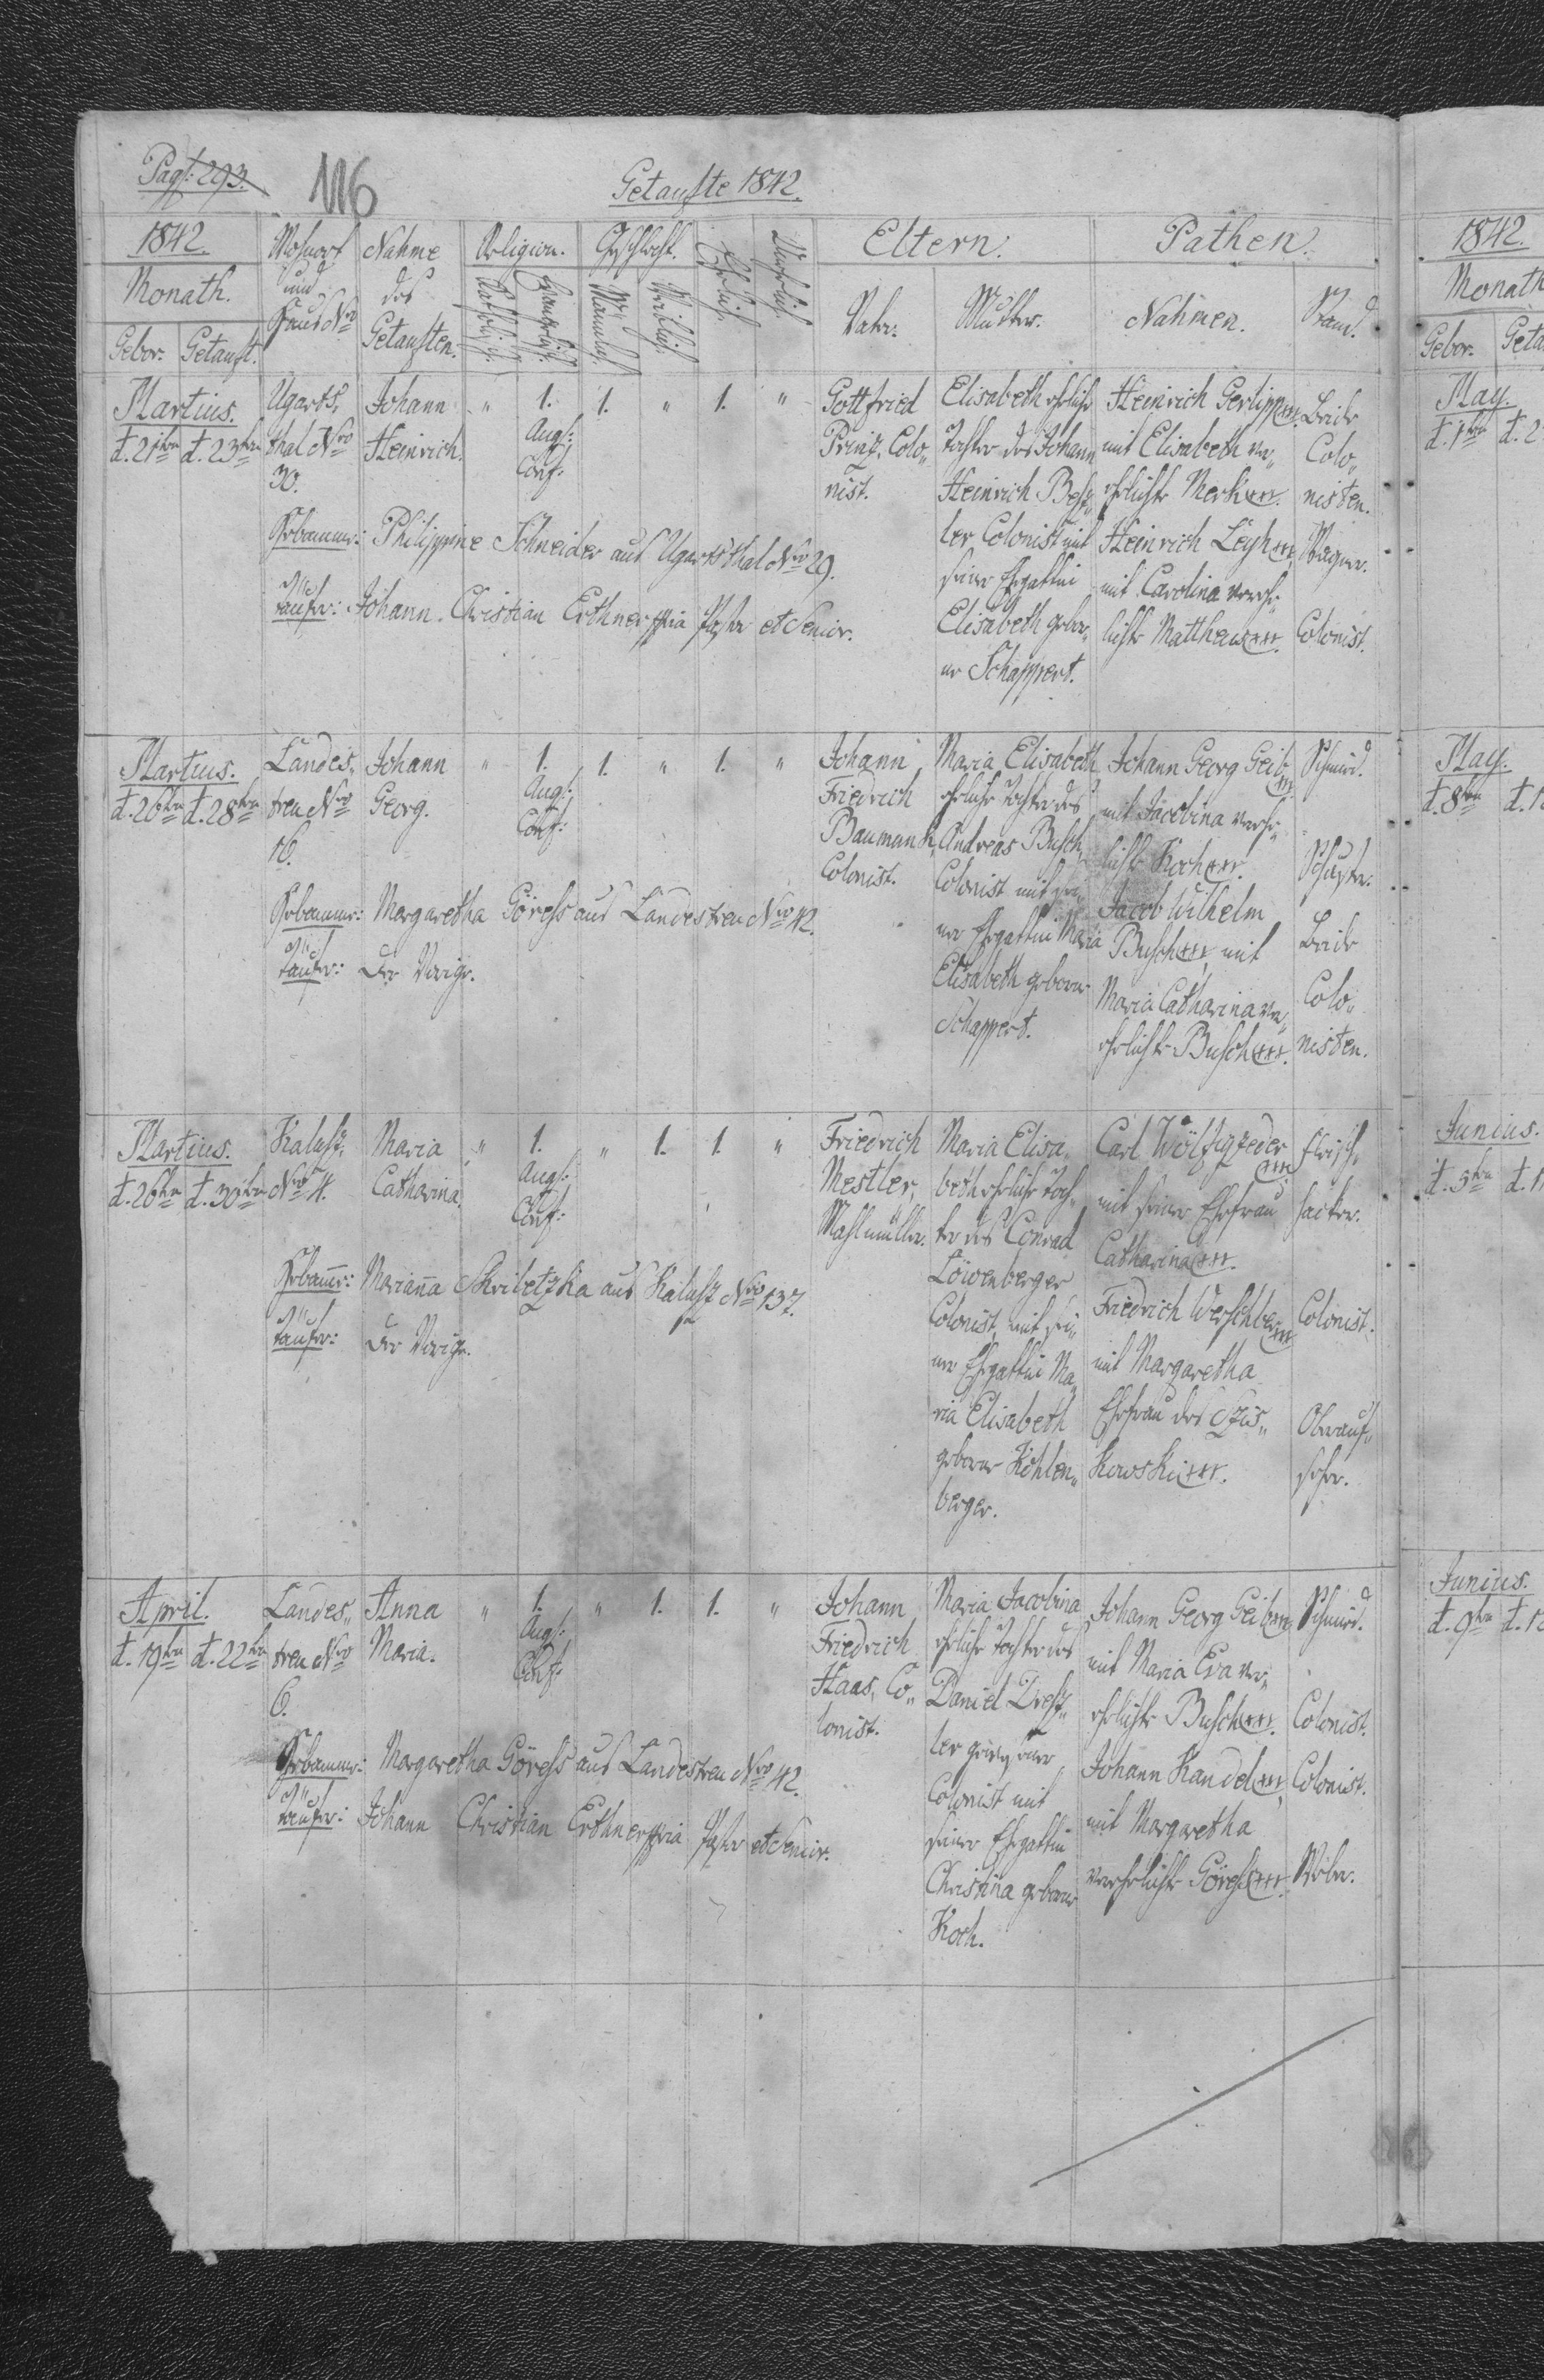 Pag: 293.
116
Getaufte 1842.
1842.
Monath.
Gebor. Getauft.
Wohnort
und
Haus Nro
Nahme
des
Getauften.
Religion.
Katholisch.
Evangelisch.
Geschlecht.
Männlich.
Weiblich.
Ehelich.
Unehelich.
Eltern.
Vater.
Mutter.
Pathen.
Nahmen.
Stand.
Martius.
d. 21ten d. 23ten
Ugarts,
thal Nro
30.
Johann
Heinrich.
" 1. 1. " 1. "
Augs:
Conf:
Gottfried
Prinz, Colo„
nist.
Elisabeth eheliche
Tochter des Johann
Heinrich Beß„
ler Colonist mit
seiner Ehgattin
Elisabeth gebor„
ne Schappert.
Heinrich Gerlipp xxx.
mit Elisabeth ver„
ehelichte Merk xxx.
Heinrich Leyh xxx,
mit Carolina vereh„
lichte Mattheus xxx.
Beide
Colo„
nisten.
Wagner.
Colonist.
Hebamme: Philippine Schneider aus Ugartsthal Nro 29.
Täufer: Johann Christian Erthner mpria Pastor et Senior.
Martius.
d. 26ten d. 28ten
Landes„
treu Nro
16.
Johann
Georg.
" 1. 1. " 1. "
Augs:
Conf:
Johann
Friedrich
Baumann,
Colonist.
Maria Elisabeth
eheliche Tochter des
Andreas Busch,
Colonist mit sei„
ner Ehgattin Maria
Elisabeth geborne
Schappert.
Johann Georg Geib
xxx.
mit Jacobina vereh„
lichte Koch xxx.
Jacob Wilhelm
Busch xxx, mit
Maria Catharina ver„
ehelichte Busch xxx.
Schmied.
Schuster.
Beide
Colo„
nisten.
Hebamme: Margaretha Göress aus Landestreu Nro 42.
Täufer: Der Vorige.
Martius.
d. 26ten d. 30ten
Kalusz,
Nro 4.
Maria
Catharina.
" 1. " 1. 1. "
Augs:
Conf:
Friedrich
Mestler,
Mahlmüller.
Maria Elisa„
beth eheliche Toch„
ter des Conrad
Löwenberger
Colonist, mit sei„
ner Ehgattin Ma„
ria Elisabeth
geborne Köhlen„
berger.
Carl
xxx.
mit seiner Ehefrau
Catharina xxx.
Friedrich
xxx
mit Margaretha
Ehefrau des Czis„
kowski xxx.
Fleisch„
hacker.
Colonist.
Oberauf„
seher.
Hebamme: Marianna Skribetzka aus Kalusz Nro 137.
Täufer: Der Vorige.
April.
d. 19ten d. 22ten
Landes„
treu Nro
6.
Anna
Maria.
" 1. " 1. 1. "
Augs:
Conf:
Johann
Friedrich
Haas, Co„
lonist.
Maria Jacobina
eheliche Tochter des
Daniel Dreß„
ler
Colonist mit
seiner Ehgattin
Christina geborne
Koch.
Johann Georg Geib xxx
mit Maria Eva ver„
ehelichte Busch xxx.
Johann Kandel xxx,
mit Margaretha
verehelichte Göress xxx.
Schmied.
Colonist.
Colonist.
Weber.
Hebamme: Margaretha Göress aus Landestreu Nro 42.
Täufer: Johann Christian Erthner mpria Pastor et Senior.
1842.
Monath
Gebor. Geta
May.
d. 1ten d. 2
May.
d. 8ten d. 1
Junius.
d. 5ten d. 1
Junius.
d. 9ten d. 1